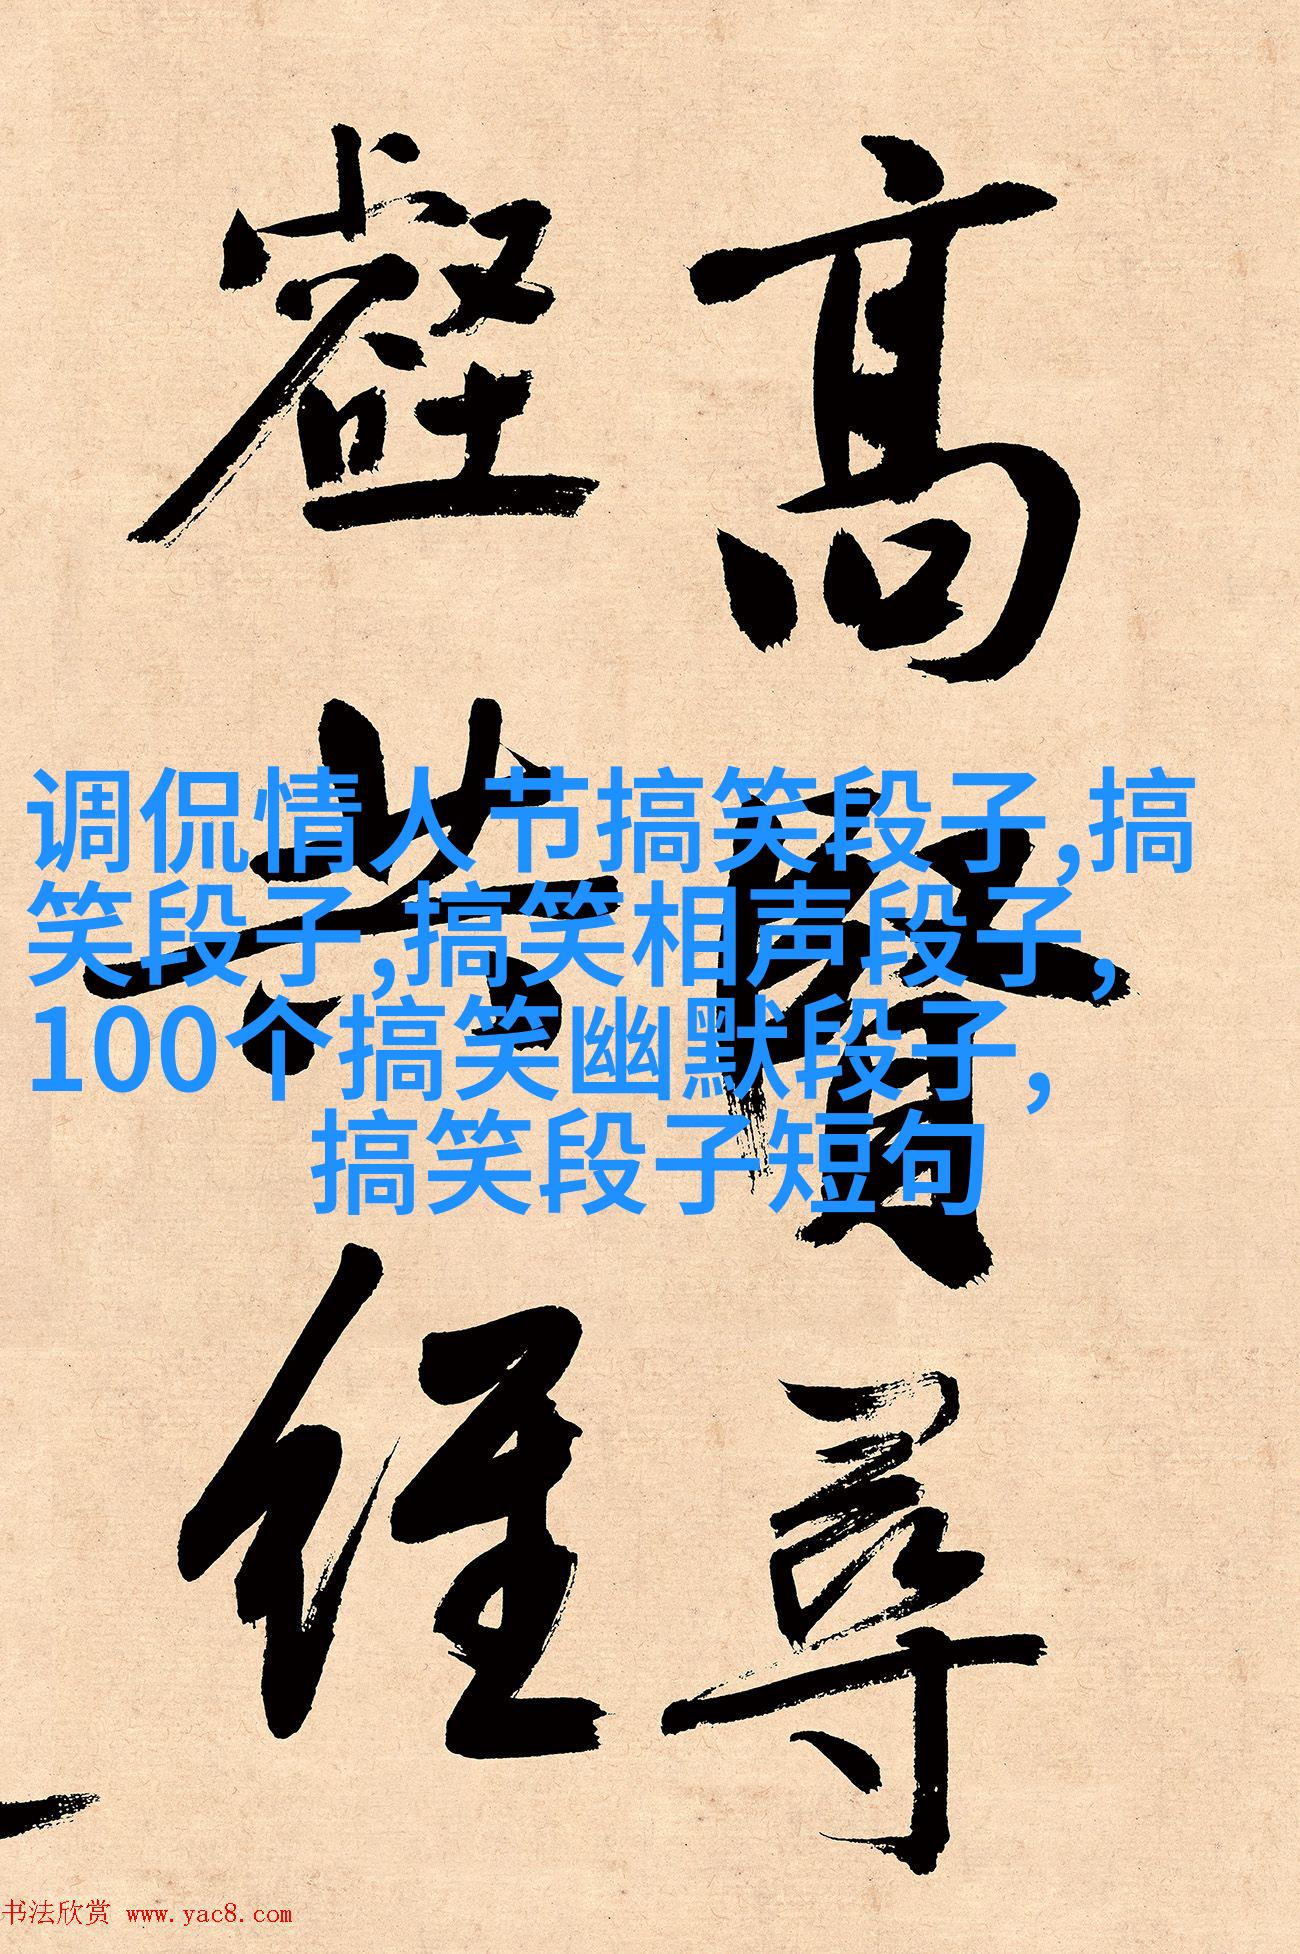 高賢尋
壑共經
调侃情人节搞笑段子,搞
笑段子,搞笑相声段子,
100个搞笑幽默段子,
搞笑段子短句
书法欣赏 www.yac8.com